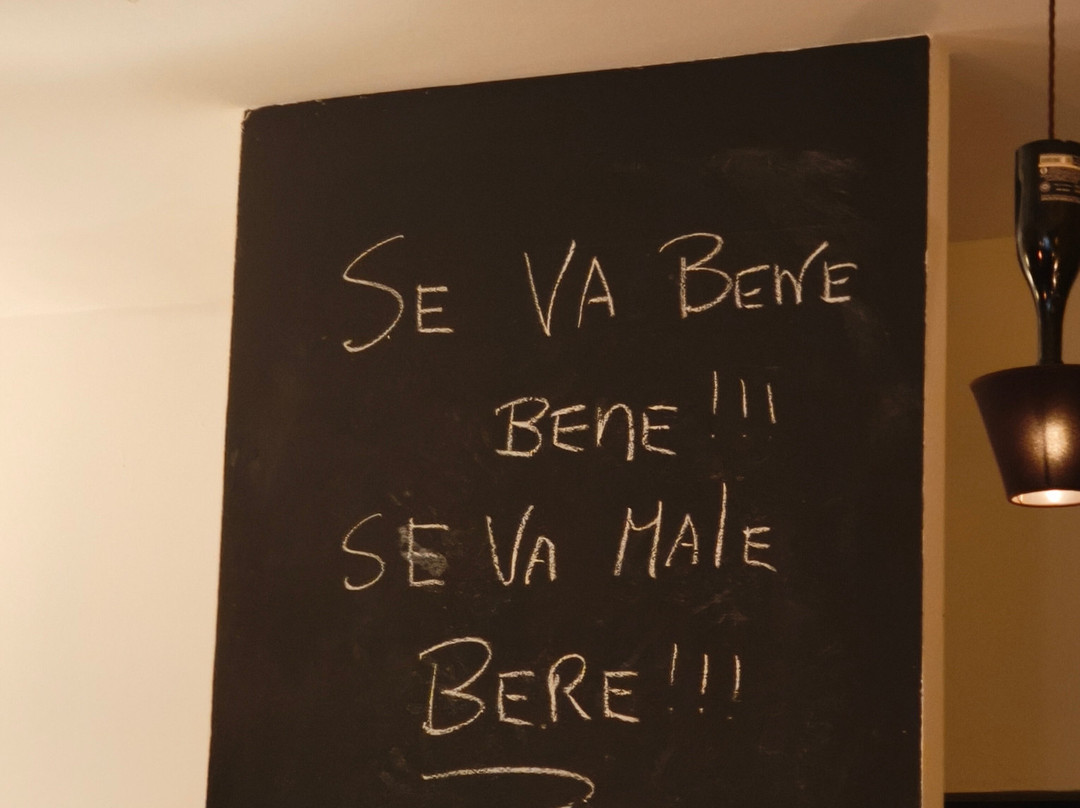 SE VA BENE
BENE!!!
SE VA MALE
BERE!!!